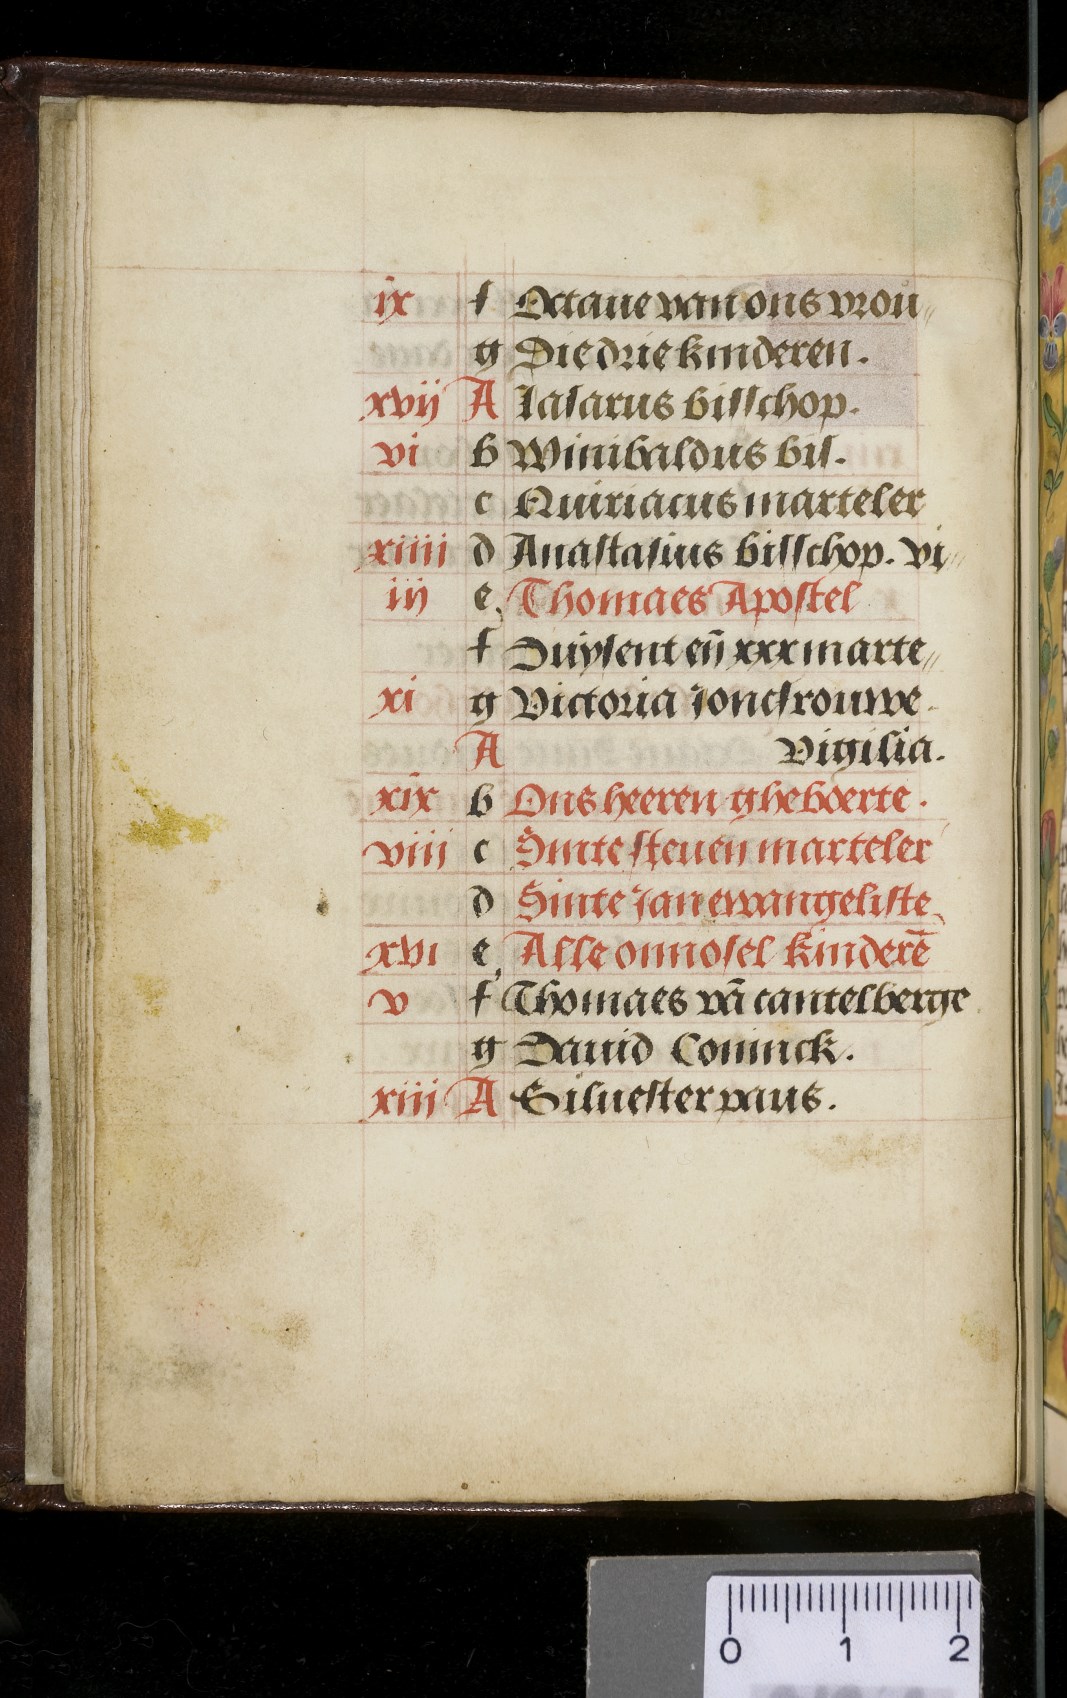 ix f Octaue van ons vrou„
g Die drie kinderen.
xvij A Lasarus bisschop.
vi b Winibaldus bis.
c Quiriacus marteler
xiiii d Anastasius bisschop. vi„
iij e Thomaes Apostel
f Duysent en̄ xxx marte„
xi g Victoria Joncfrouwe.
A Vigilia.
xix b Ons heeren gheboerte.
viij c Sinte steuen marteler
d Sinte Jan ewangeliste
xvi e Alle onnosel kinderē
v f Thomaes vā cantelberge
g Dauid Coninck.
xiij A Siluester paus.
0 1 2